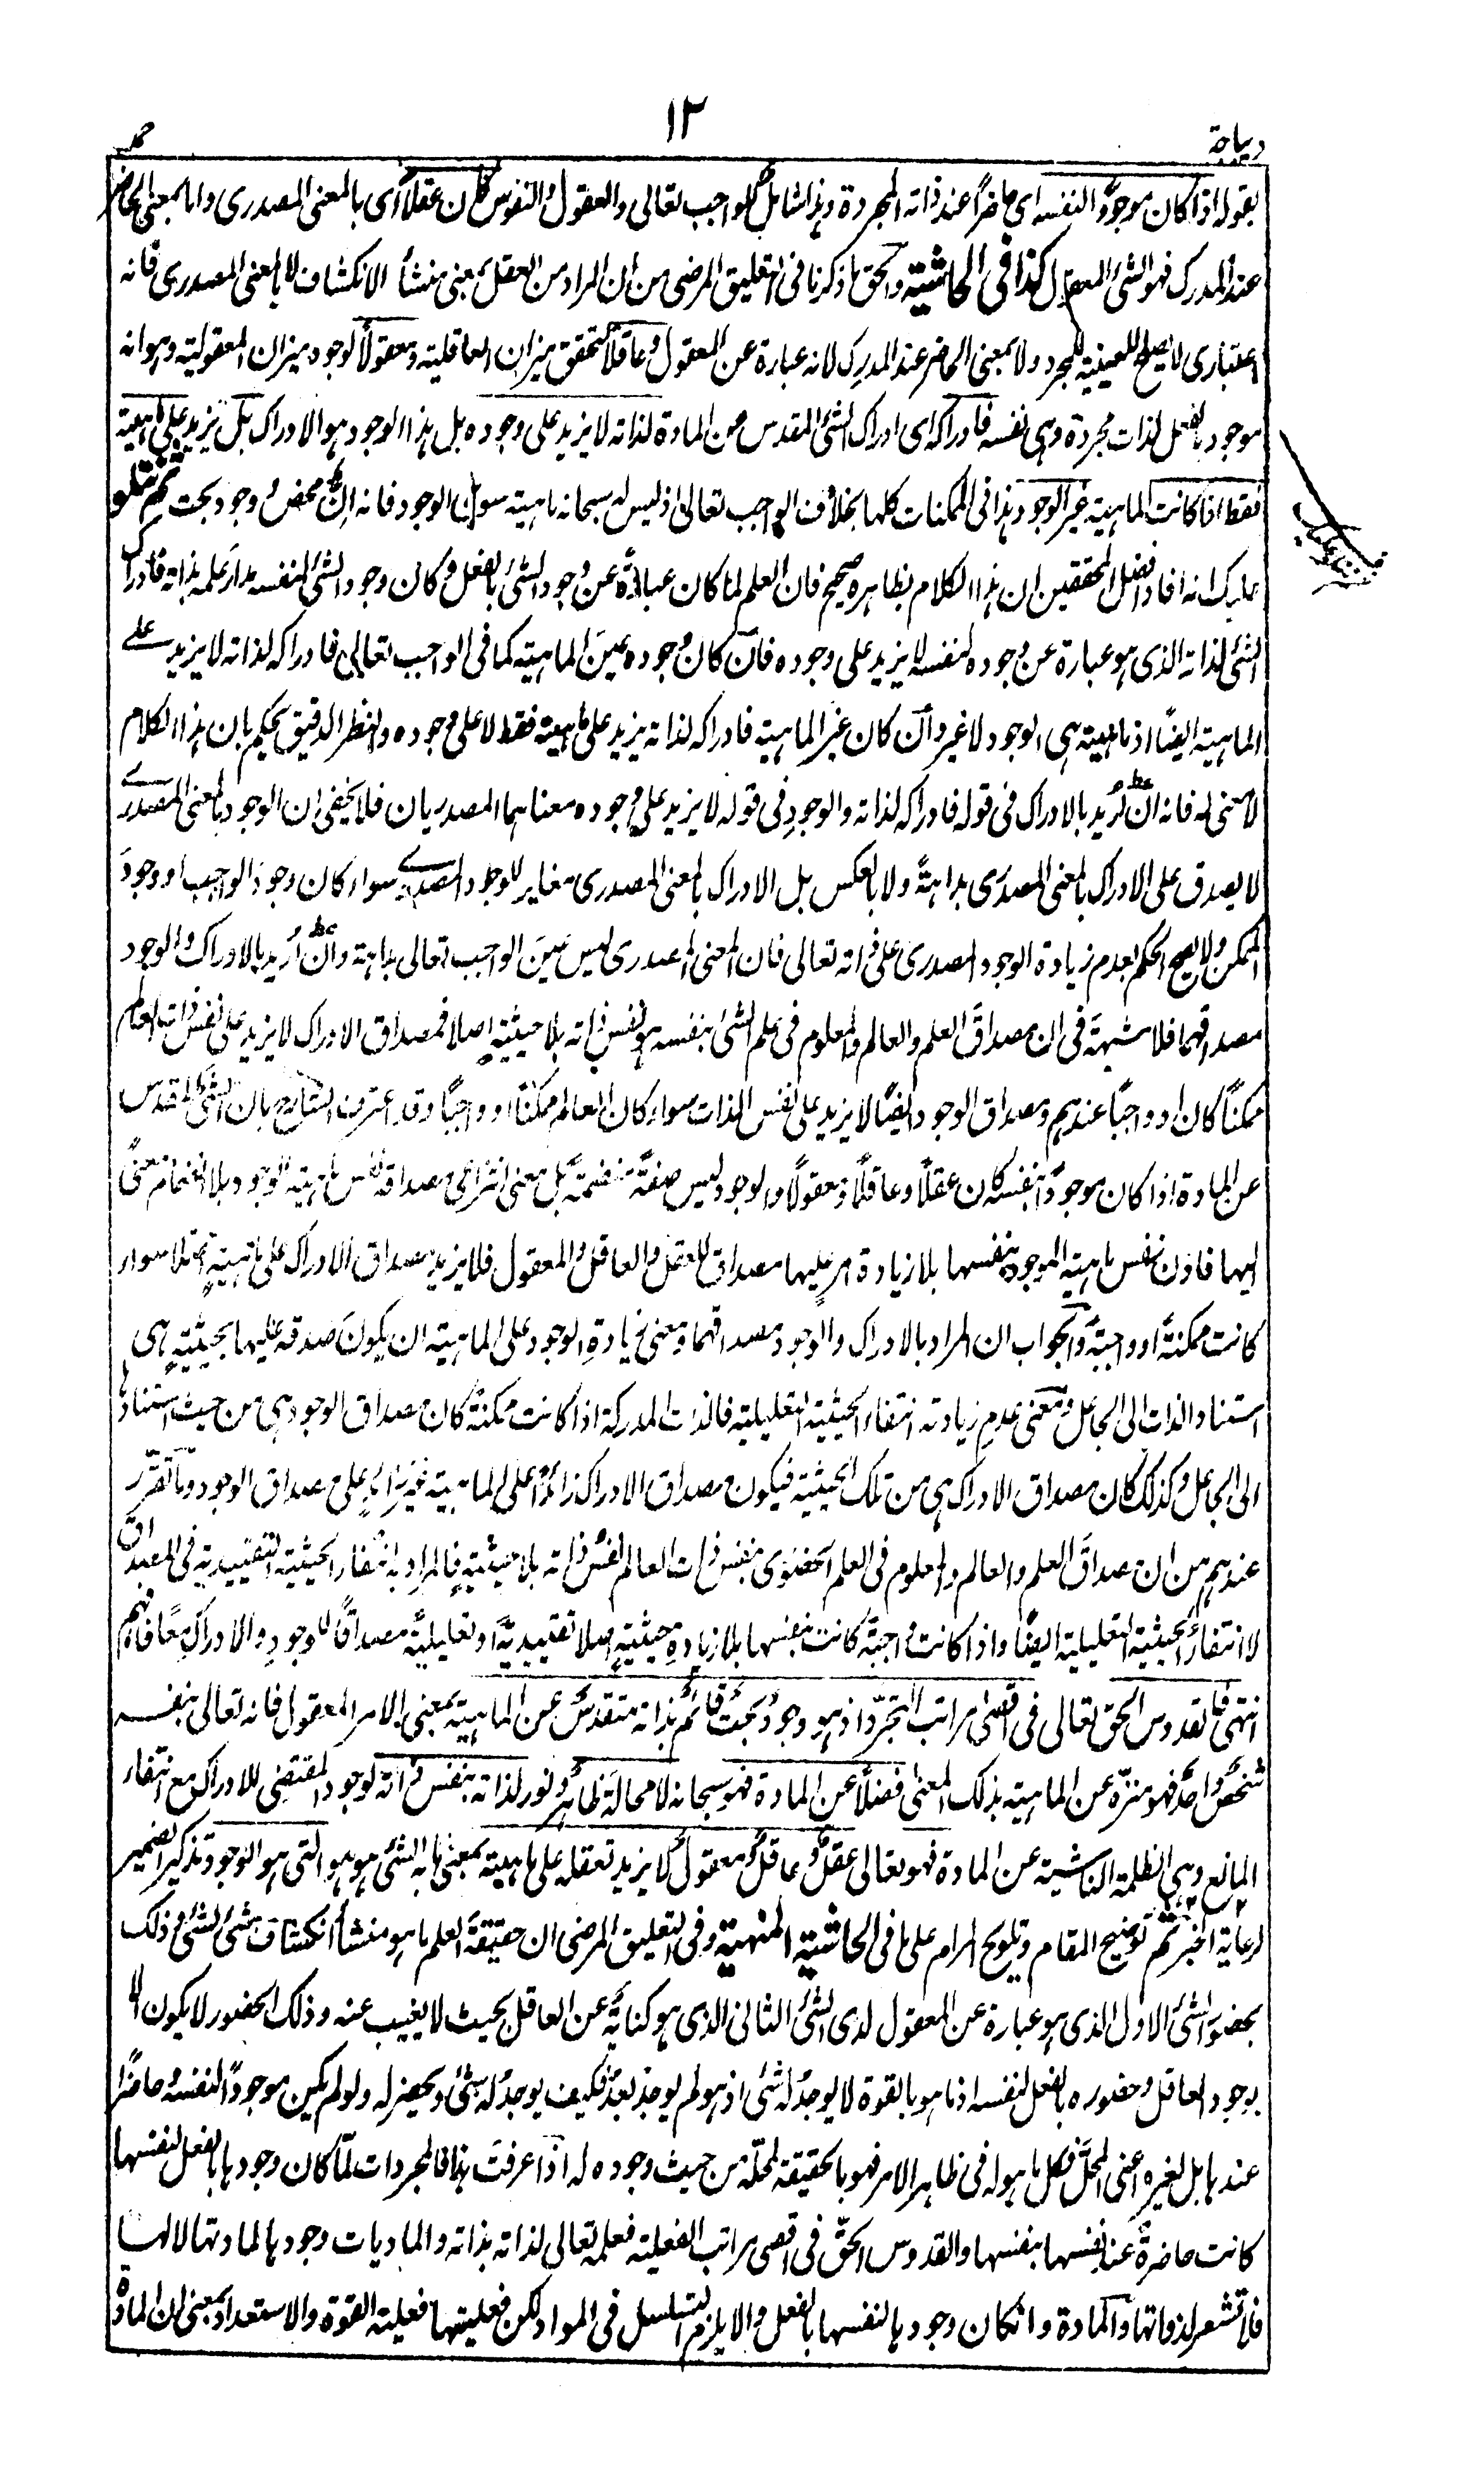 ١٢
ديباجة
حمد
بقوله اذا كان موجودًا لنفسه اى حاضرًا عند ذاته المجردة وهذا شامل للواجب تعالى والعقول والنفوس كان عقلًا اى بالمعنى المصدرى واما بمعنى الحاضر
عند المدرك فهو الشئ المعقول كذا فى الحاشية والحق ما ذكرنا فى التعليق المرضى من ان المراد من العقل بمعنى منشأ الانكشاف لا بالمعنى المصدرى فانه
اعتبارى لا يصلح للعينية للمجرد ولا بمعنى الحاضر عند المدرك لانه عبارة عن المعقول وعاقلًا لتحقق ميزان العاقلية ومعقولًا لوجود ميزان المعقولية وهو انه
موجود بالفعل لذات مجردة وهى نفسه فادراكه اى ادراك الشئ المقدس عن المادة لذاته لا يزيد على وجوده بل هذا الوجود هو الادراك بل يزيد على ماهيته
فقط اذا كانت الماهية غير الوجود هذا فى الممكنات كلها بخلاف الواجب تعالى اذ ليس له سبحانه ماهية سوى الوجود فانه إنٌّ محض ووجود بحت ثم نتلو
عليك انه افاد افضل المحققين ان هذا الكلام بظاهره صحيح فان العلم لما كان عبارة عن وجود الشئ بالفعل وكان وجود الشئ لنفسه مدار علمه بذاته فادراك
الشئ لذاته الذى هو عبارة عن وجوده لنفسه لا يزيد على وجوده فان كان وجوده عين الماهية كما فى الواجب تعالى فادراكه لذاته لا يزيد على
الماهية ايضًا اذ ماهيته هى الوجود لا غير وان كان غير الماهية فادراكه لذاته يزيد على ماهيته فقط لا على وجوده والنظر الدقيق يحكم بان هذا الكلام
لا معنى له فانه ان اريد بالادراك فى قوله فادراكه لذاته والوجود فى قوله لا يزيد على وجوده معناهما المصدريان فلا يخفى ان الوجود بالمعنى المصدرى
لا يصدق على الادراك بالمعنى المصدرى بداهةً ولا بالعكس بل الادراك بالمعنى المصدرى مغاير للوجود المصدرى سواء كان وجود الواجب او وجود
الممكن ولا يصح الحكم بعدم زيادة الوجود المصدرى على ذاته تعالى فان المعنى المصدرى ليس عين الواجب تعالى بداهة وان اريد بالادراك والوجود
مصداقهما فلا شبهة فى ان مصداق العلم والعالم والمعلوم فى علم الشئ بنفسه هو نفس ذاته بلا حيثيةٍ اصلا فمصداق الادراك لا يزيد على نفس ذات العالم
ممكنًا كان او واجبًا عندهم ومصداق الوجود ايضًا لا يزيد على نفس الذات سواء كان العالم ممكنًا او واجبًا وقد اعترف الشارح بان الشئ المقدس
عن المادة اذا كان موجودًا بنفسه كان عقلًا وعاقلًا ومعقولًا والوجود ليس صفةً منضمةً بل معنى انتزاعى مصداقه نفس ماهية الوجود بلا انضمام معنًى
اليها فاذن نفس ماهية الموجود بنفسها بلا زيادة امر عليها مصداق للعقل والعاقل والمعقول فلا يزيد مصداق الادراك على ماهيةٍ اصلا سواء
كانت ممكنةً او واجبةً والجواب ان المراد بالادراك والوجود مصداقهما ومعنى زيادة الوجود على الماهية ان يكون صدقه عليها بحيثيةٍ هى
استناد الذات الى الجاعل ومعنى عدم زيادته انتفاء الحيثية التعليلية فالذات المدركة اذا كانت ممكنةً كان مصداق الوجود هى من حيث استنادها
الى الجاعل وكذلك كان مصداق الادراك هى من تلك الحيثية فيكون مصداق الادراك زائدًا على الماهية غير زائدٍ على مصداق الوجود وما تقرر
عندهم من ان مصداق العلم والعالم والمعلوم فى العلم الحضورى بنفس ذات العالم نفس ذاته بلا حيثيةٍ فالمراد به انتفاء الحيثية التقييدية فى المصداق
لا انتفاء الحيثية التعليلية ايضًا واذا كانت واجبةً كانت بنفسها بلا زيادة حيثيةٍ اصلا تقييديةً او تعليليةً مصداقًا للوجود والادراك معًا فافهم
انتهى فالقدوس الحق تعالى فى اقصى مراتب التجرد اذ هو وجودٌ بحتٌ قائمٌ بذاته متقدسٌ عن الماهية بمعنى الامر المعقول فانه تعالى بنفسه
شخصٌ واحدٌ فهو منزهٌ عن الماهية بذلك المعنى فضلًا عن المادة فهو سبحانه لا محالة ظاهرٌ ونور لذاته بنفس ذاته لوجود المقتضى للادراك مع انتفاء
المانع وهى الظلمة الناشية عن المادة فهو تعالى عقلٌ وعاقلٌ ومعقولٌ لا يزيد تعقله على ماهيته بمعنى ما به الشئ هو هو التى هو الوجود وتذكير الضمير
لرعاية الخبر ثم توضيح المقام وتلويح المرام على ما فى الحاشية المنهية وفى التعليق المرضى ان حقيقة العلم ما هو منشأ انكشاف شئ لشئ وذلك
بحضور الشئ الاول الذى هو عبارة عن المعقول لدى الشئ الثانى الذى هو كنايةٌ عن العاقل بحيث لا يغيب عنه وذلك الحضور لا يكون الا
بوجود العاقل وحضوره بالفعل لنفسه اذ ما هو بالقوة لا يوجد له شئ اذ هو لم يوجد بعد فكيف يوجد له شئ ويحضر له ولو لم يكن موجودًا لنفسه حاضرًا
عندها بل لغيره اعنى المحل فكل ما هو له فى ظاهر الامر فهو بالحقيقة لمحله من حيث وجوده له اذا عرفت هذا فالمجردات لما كان وجودها بالفعل لنفسها
كانت حاضرةً عند نفسها بنفسها والقدوس الحق فى اقصى مراتب الفعلية فعلمه تعالى لذاته بذاته والماديات وجودها لمادتها لا لها
فلا تشعر لذواتها والمادة وان كان وجودها لنفسها بالفعل والا يلزم التسلسل فى المواد لكن فعليتها فعلية القوة والاستعداد بمعنى ان المادة